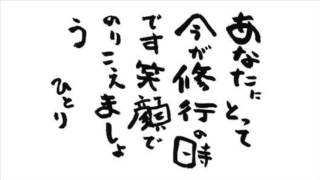 あなたにとって
今が修行の時
です笑顔で
のりこえましょ
う
ひとり